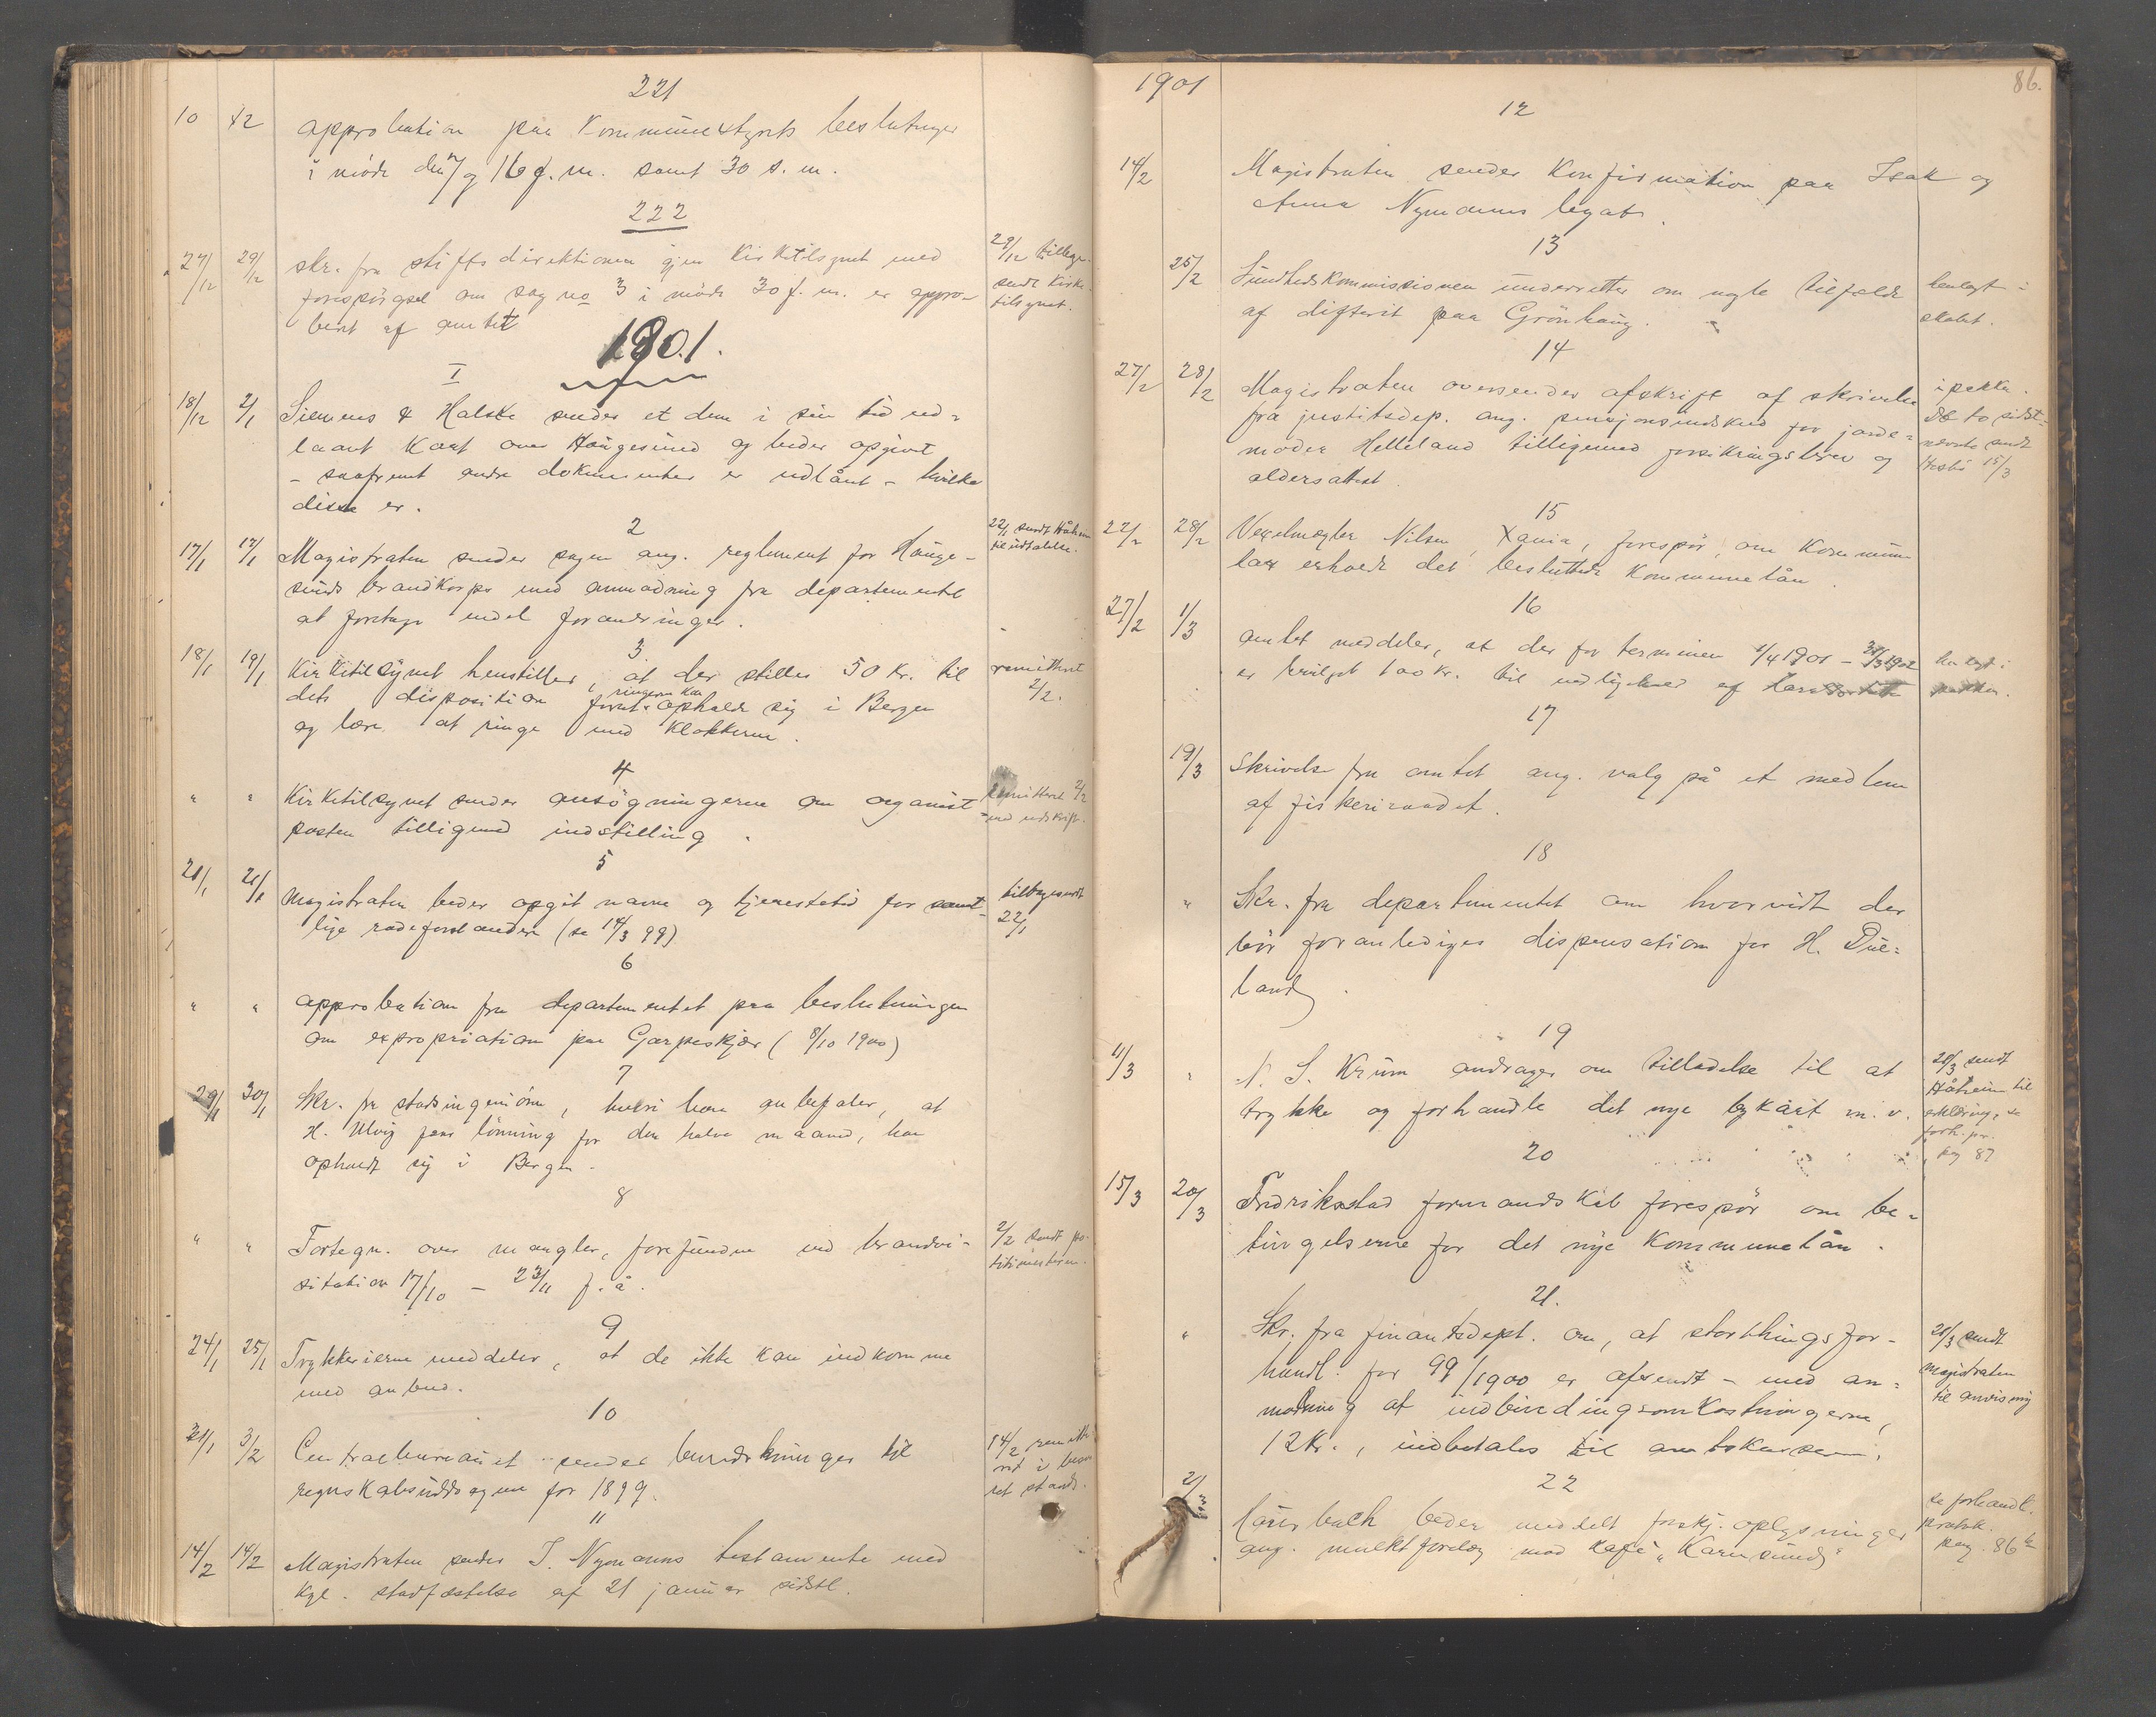 221
10 12 approbation paa Kommunestyrets beslutninger
i møde den 7/ og 16 f. m. samt 30 s. m.
222
27/12 29/12 skr. fra stiftsdirektionen gjen Kirketilsynet med 29/12 tillige-
forespörgsel om sag no 3 i møde 30 f. m. er appro- sendt Kirke-
beret af amtet tilsynet.
1901.
I
18/12 2/1 Siemens & Halske sender et dem i sin tid ud-
laant Kart over Haugesund og beder opgivet
- saafremt andre dokumenter er udlånt - hvilke
disse er.
2
17/1 17/1 Magistraten sender sagen ang. reglement for Hauge- 22/1 sendt Håheim
sunds brandkorps med anmodning fra departementet til udtalelse.
at foretage endel forandringer.
3
18/1 19/1 Kirketilsynet henstiller, at der stilles 50 Kr. til remitteret
dets disposition forat ringeren kan opholde sig i Bergen 2/2.
og lære at ringe med Klokkerne.
4
" " Kirketilsynet sender ansögningerne om organist- remitteret 2/2
posten tilligemed indstilling. med udskrift.
5
21/1 21/1 Magistraten beder opgit navne og tjenestetid for samt- tilbagesendt
lige rodeforstandere (se 14/3 99) 22/1
6
" " approbation fra departementet paa beslutningen
om expropriation paa Garpeskjær (8/10 1900)
7
29/1 30/1 Skr. fra stadsingeniören, hvori han anbefaler, at
H. Ulvig faar lönning for den halve maaned, han
opholdt sig i Bergen.
8
" " Fortegn. over mangler, forefundne ved brandvi- 2/2 sendt po-
sitation 17/10 - 23/11 f. å. litimesteren.
9
24/1 25/1 Trykkerierne meddeler, at de ikke kan indkomme
med anbud.
10
31/1 3/2 Centralbureauet sender bemærkninger til 14/2 remitte-
regnskabsuddragene for 1899. ret i besva-
ret stand.
11
14/2 14/2 Magistraten sender I. Nymanns testamente med
Kgl. stadfæstelse af 21 januar sidstl.
1901 86.
12
14/2 Magistraten sender Konfirmation paa Isak og
Anna Nymanns legat.
13
25/2 Sundhedskommissionen underretter om nogle tilfælde henlagt i
af difterit paa Grönhaug. skabet.
14
27/2 28/2 Magistraten oversender afskrift af skrivelse i pakke.
fra justitsdep. ang. pensjonsindskud for jorde- De to sidst-
moder Helleland tilligemed forsikringsbrev og nævnte sendt
aldersattest. Hesbö 15/3
15
22/2 28/2 Vexelmægler Nilsen, Xania, forespör, om Kommunen
har erholdt det besluttede Kommunelån.
16
27/2 1/3 amtet meddeler, at der for terminen 1/4 1901 - 31/3 1902 henlagt i
er bevilget 100 Kr. til vedligehold af pakken.
17
19/3 Skrivelse fra amtet ang. valg på et medlem
af fiskeriraadet.
18
" Skr. fra departementet om hvorvidt der
bör foranlediges dispensation for H. Due-
land.
19
11/3 " N. S. Krüm andrager om tilladelse til at 20/3 sendt
trykke og forhandle det nye bykart m. v. Håheim til
erklæring, se
forh. pr.
pag 87
20
15/3 20/3 Fredrikstad formandskab forespör om be-
tingelserne for det nye Kommunelån.
21.
" Skr. fra finantsdept. om, at storthingsfor- 20/3 sendt
handl. for 99/1900 er afsendt - med an- magistraten
modning at indbindingsomkostningerne, til anvisning
12 Kr., indbetales til amtskassen.
22
2/3 beder meddelt forskj. oplysninger se forhandl.
ang. mulktforelæg mod kafé "Karmsund" protok.
pag. 86